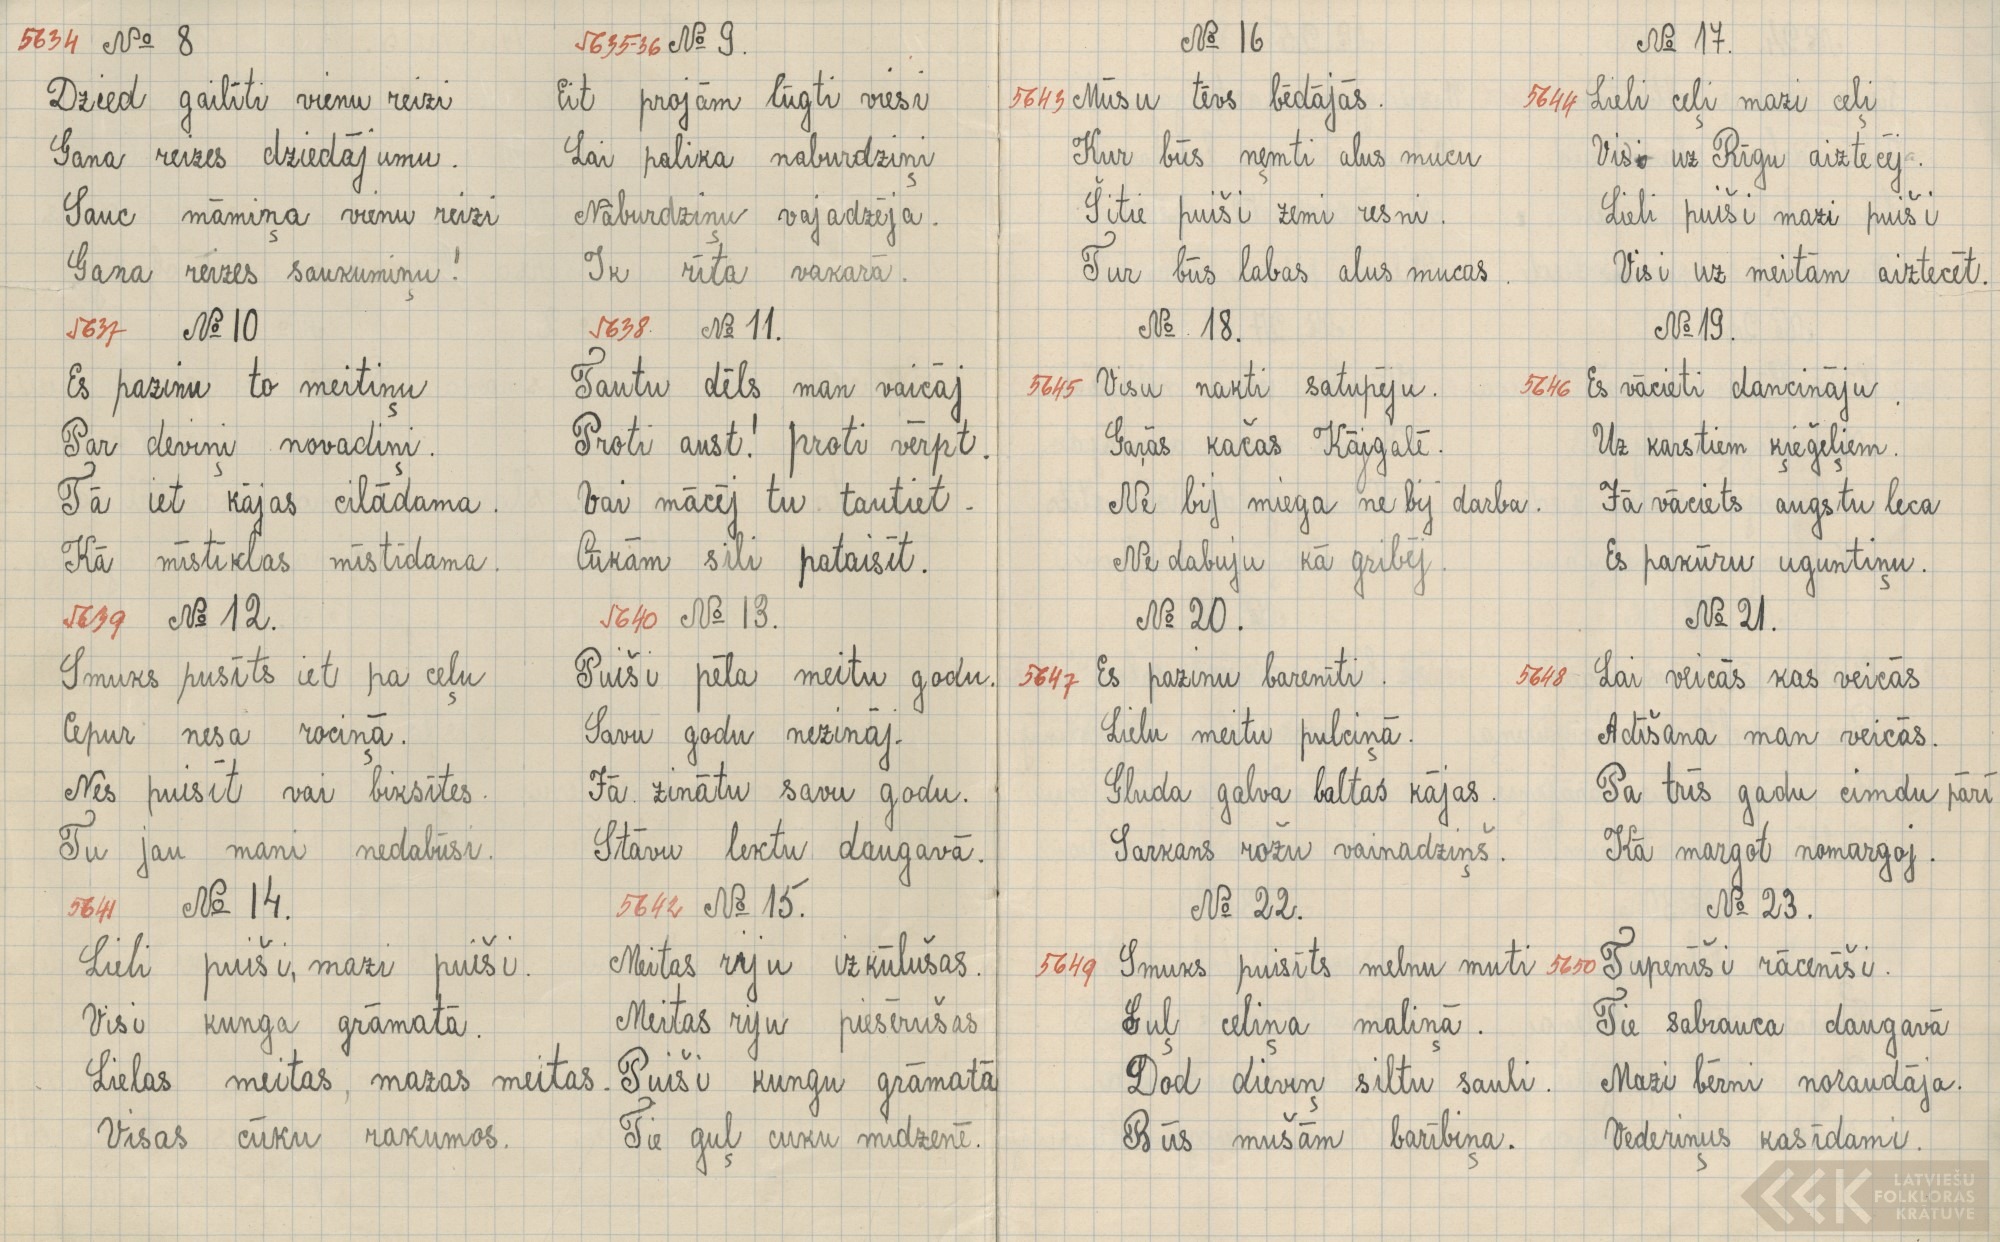 5634 № 8
Dzied gailīti vienu reizi
Gana reizes dziedājumu.
Sauc māmiņa vienu reizi
Gana reizes saukumiņu!
5635-36 № 9.
Eit projām lūgti viesi
Lai palika naburdziņi
Nāburdziņu vajadzēja.
Ik rīta vakarā.
5637 № 10
Es pazinu to meitiņu
Par deviņi novadiņi.
Tā iet kājas cilādama.
Kā mīstīklas mīstīdama.
5638. № 11.
Tautu dēls man vaicāj
Proti aust! proti vērpt.
Vai mācēj tu tautiet.
Cūkām sili pataisīt.
5639 № 12.
Smuks pusīts iet pa ceļu
Cepur nesa rociņā.
Nes puisīt vai biksītes.
Tu jau mani nedabūsi.
5640 № 13.
Puiši pēla meitu godu.
Savu godu nezināj.
Jā zinātu savu godu.
Stāvu lektu daugavā.
5641 № 14.
Lieli puiši, mazi puiši.
Visi kunga grāmatā.
Lielas meitas, mazas meitas.
Visas cūku rakumos.
5642 № 15.
Meitas riju izkūlušas.
Meitas riju piesērušas
Puiši kungu grāmatā
Tie guļ cuku midzenē.
№ 16
5643 Mūsu tēvs bēdājās.
Kur būs ņemti alus mucu
Šitie puiši zemi resni.
Tur būs labas alus mucas.
№ 17.
5644 Lieli ceļi mazi ceļi
Visi uz Rīgu aiztecēj.
Lieli puiši mazi puiši
Visi uz meitām aiztecēt.
№ 18.
5645 Visu nakti satupēju.
Gaŗās kačas Kājgalē.
Ne bij miega ne bij darba.
Ne dabuju kā gribēj.
№ 19.
5646 Es vācieti dancināju.
Uz karstiem ķieģeļiem.
Jā vāciets augstu leca
Es pakūru uguntiņu.
№ 20.
5647 Es pazinu barenīti.
Lielu meitu pulciņā.
Gluda galva baltas kājas.
Sarkans rožu vainadziņš.
№ 21.
5648 Lai veicās kas veicās
Adīšana man veicās.
Pa trīs gadu cimdu pāri
Kā margot nomargoj.
№ 22.
5649 Smuks puisīts melnu muti
Guļ celiņa maliņā.
Dod dieviņ siltu sauli.
Būs mušām barībiņa.
№ 23.
5650 Tupenīši rācenīši.
Tie sabrauca daugavā
Mazi bērni noraudāja.
Vederiņus kasīdami.
LATVIEŠU
FOLKLORAS
KRĀTUVE